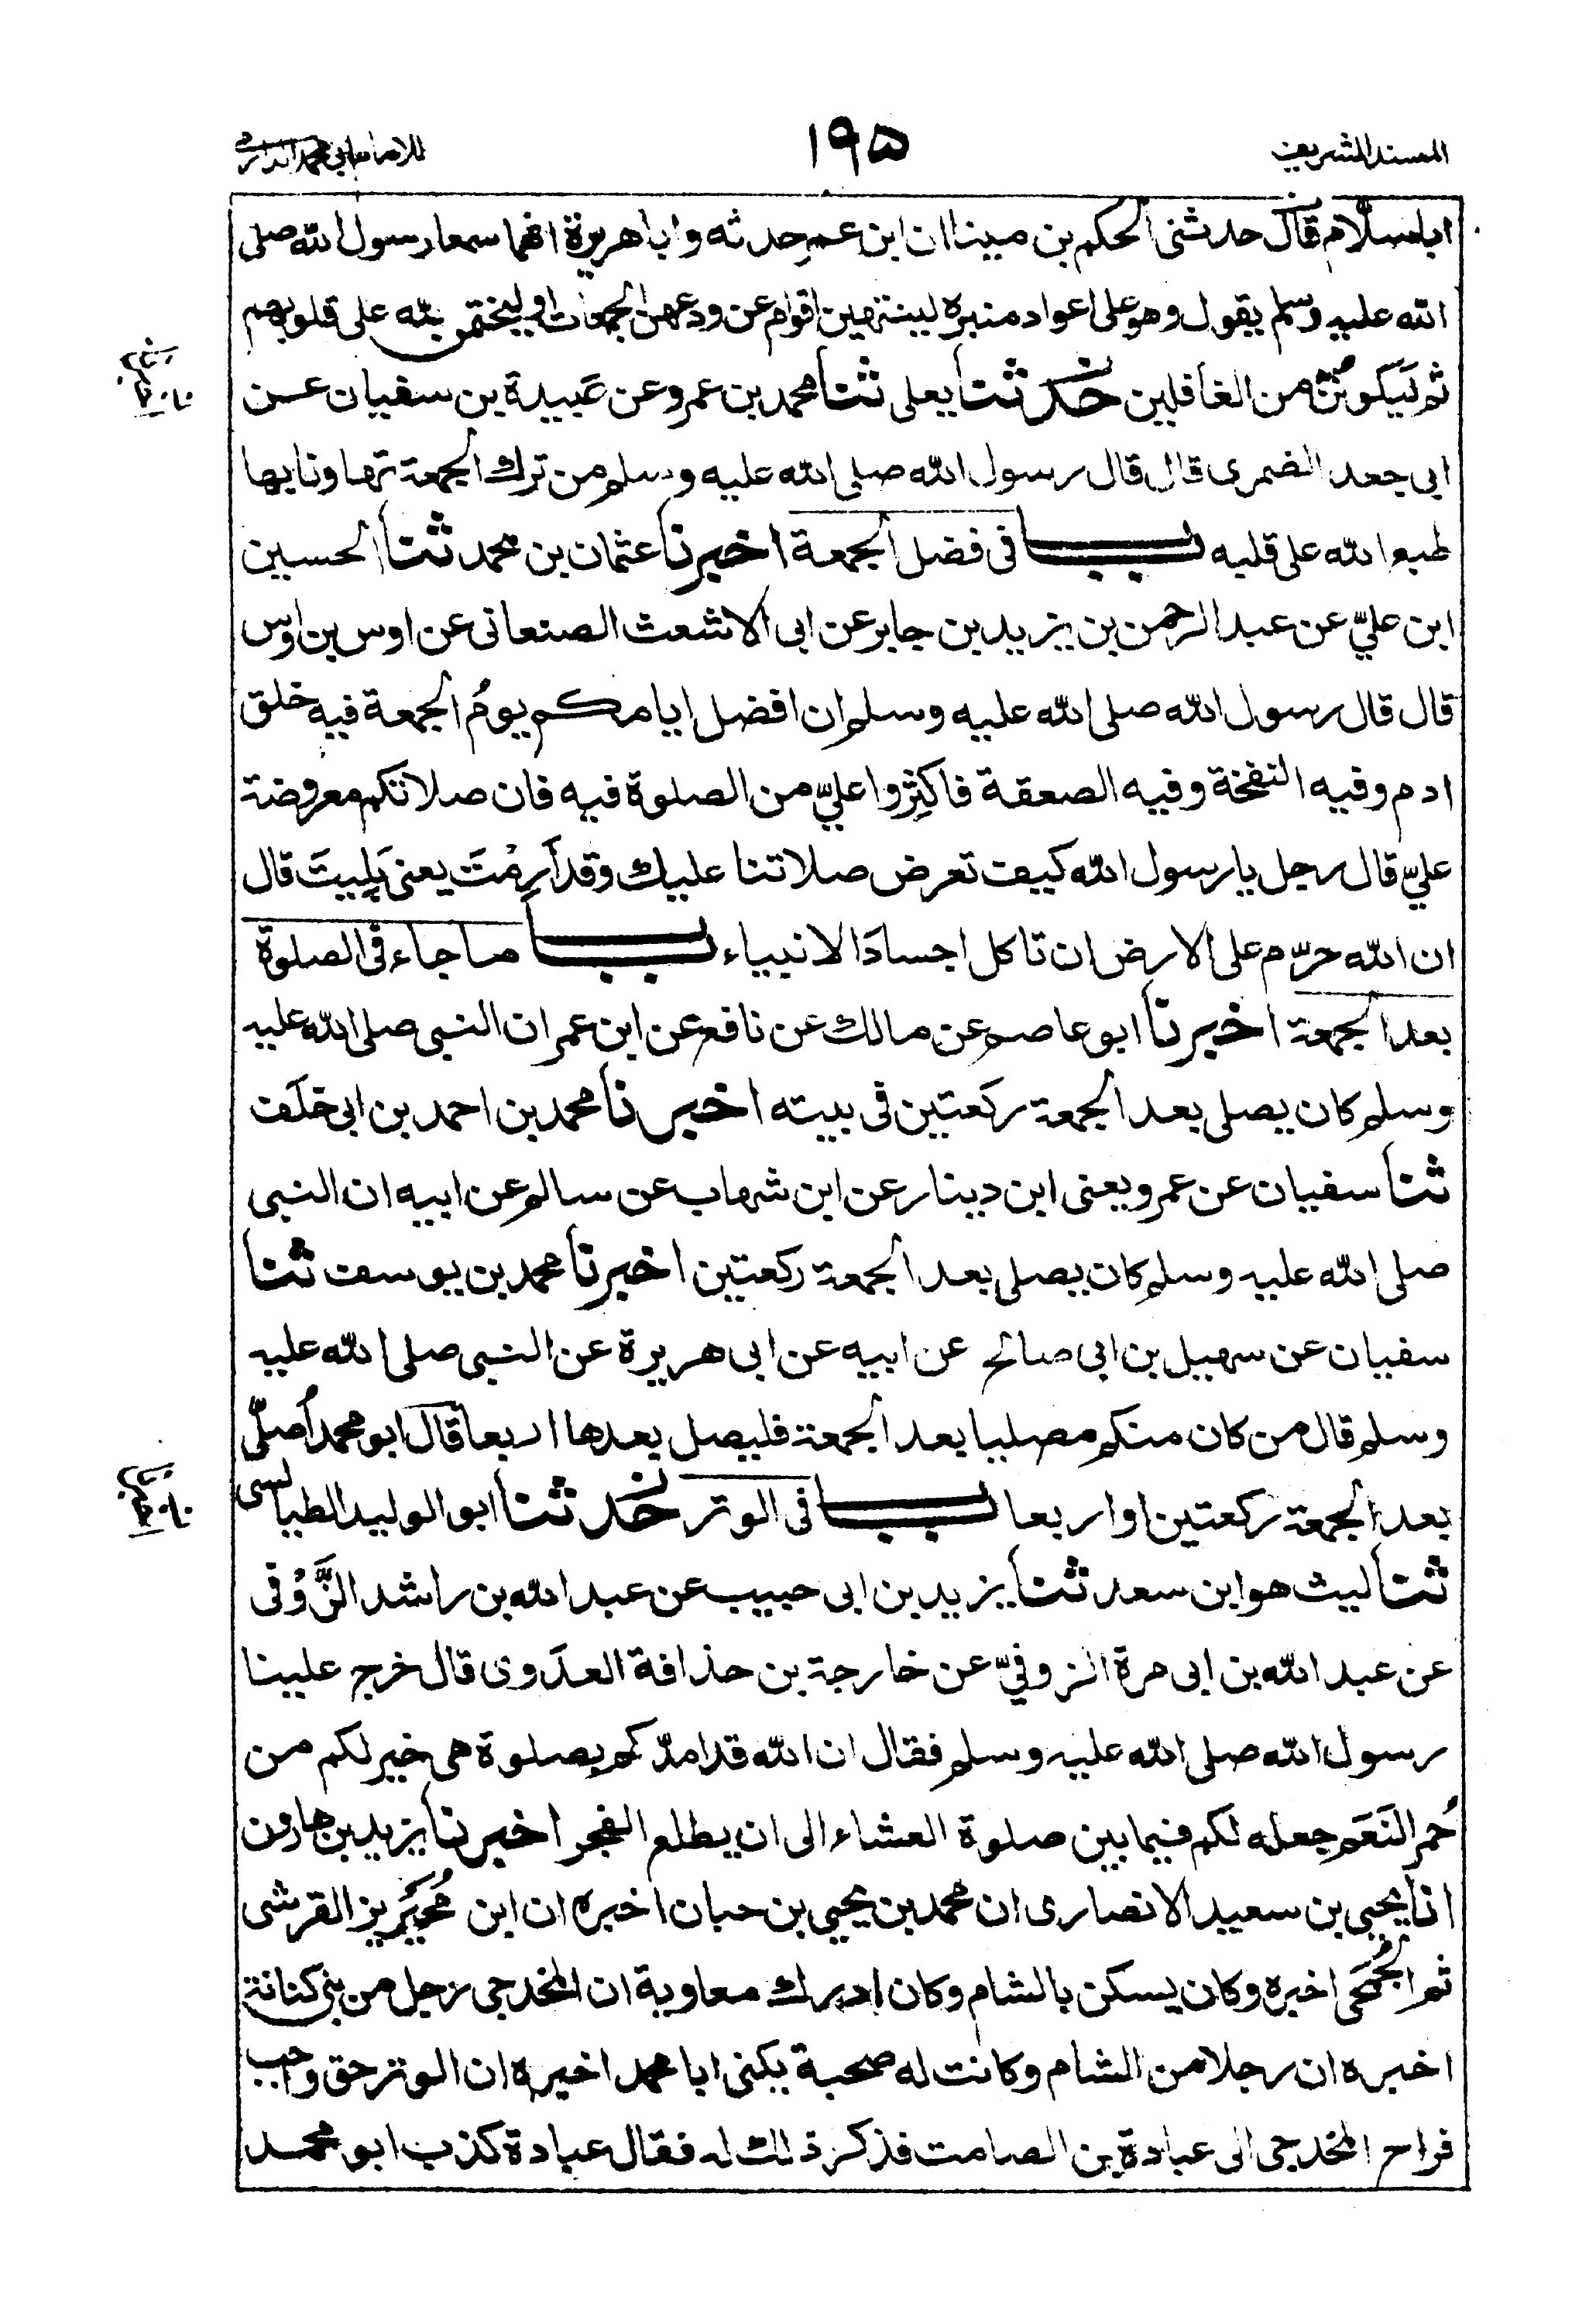 المسند الشريف
١٩٥
للامام ابى محمد الدارمى
ابا سلّام قال حدثنى الحكم بن مينا ان ابن عمر حدثه وابا هريرة انهما سمعا رسول الله صلى
الله عليه وسلم يقول وهو على اعواد منبره لينتهين اقوام عن ودعهن الجمعات او ليختمن الله على قلوبهم
ثم لَيَكونُنَّ من الغافلين حدثنا يعلى ثنا محمد بن عمرو عن عَبيدة بن سفيان عن
ابى جعد الضمرى قال قال رسول الله صلى الله عليه وسلم من ترك الجمعة تهاونا بها
طبع الله على قلبه باب فى فضل الجمعة اخبرنا عثمان بن محمد ثنا الحسين
ابن عليّ عن عبد الرحمن بن يزيد بن جابر عن ابى الاشعث الصنعانى عن اوس بن اوس
قال قال رسول الله صلى الله عليه وسلم ان افضل ايامكم يومُ الجمعة فيه خلق
ادم وفيه النفخة وفيه الصعقة فاكثِروا عليّ من الصلوة فيه فان صلاتكم معروضة
عليّ قال رجل يا رسول الله كيف تعرض صلاتنا عليك وقد اَرِمْتَ يعنى بَلِيتَ قال
ان الله حرّم على الارض ان تاكل اجسادَ الانبياء باب ما جاء فى الصلوة
بعد الجمعة اخبرنا ابو عاصم عن مالك عن نافع عن ابن عمر ان النبى صلى الله عليه
وسلم كان يصلى بعد الجمعة ركعتين فى بيته اخبرنا محمد بن احمد بن ابى خلَف
ثنا سفيان عن عمرو يعنى ابن دينار عن ابن شهاب عن سالم عن ابيه ان النبى
صلى الله عليه وسلم كان يصلى بعد الجمعة ركعتين اخبرنا محمد بن يوسف ثنا
سفيان عن سهيل بن ابى صالح عن ابيه عن ابى هريرة عن النبى صلى الله عليه
وسلم قال من كان منكم مصليا بعد الجمعة فليصل بعدها اربعا قال ابو محمد اُصلّى
بعد الجمعة ركعتين او اربعا باب فى الوتر حدثنا ابو الوليد الطيالسى
ثنا ليث هو ابن سعد ثنا يزيد بن ابى حبيب عن عبد الله بن راشد الزَّوْفى
عن عبد الله بن ابى مرة الزوفيّ عن خارجة بن حذافة العدَوى قال خرج علينا
رسول الله صلى الله عليه وسلم فقال ان الله قد امدّكم بصلوة هى خير لكم من
حُمر النَعَم جعله لكم فيما بين صلوة العشاء الى ان يطلع الفجر اخبرنا يزيد بن هارون
انا يحيى بن سعيد الانصارى ان محمد بن يحيى بن حبان اخبره ان ابن مُحَيْريز القرشى
ثم الجُمَحى اخبره وكان يسكن بالشام وكان ادرك معاوية ان المخدجى رجل من بنى كنانة
اخبره ان رجلا من الشام وكانت له صحبة يكنى ابا محمد اخبره ان الوتر حق واجب
فراح المخدجى الى عبادة بن الصامت فذكر ذلك له فقال عبادة كذب ابو محمد